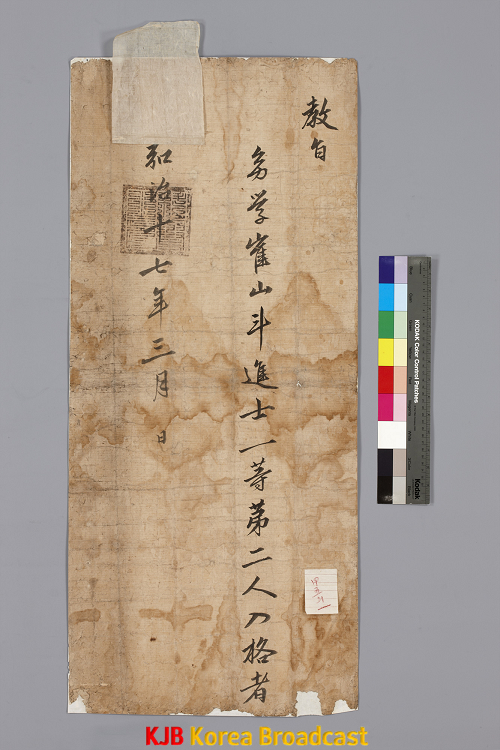 教旨
幼学崔山斗進士一等第二人入格者
弘治十七年三月 日
KODAK Color Control Patches
Kodak
KJB Korea Broadcast